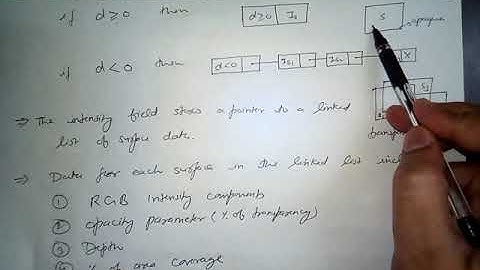 if d≥0 then d≥0 I₁ S
opaque
if d<0 then d<0 Is₁ Is₂ X
⇒ The intensity field stores a pointer to a linked S₂
list of surface data.
⇒ Data for each surface in the linked list incl
① RGB Intensity components
② opacity parameter (% of transparency)
③ Depth
④ % of area coverage